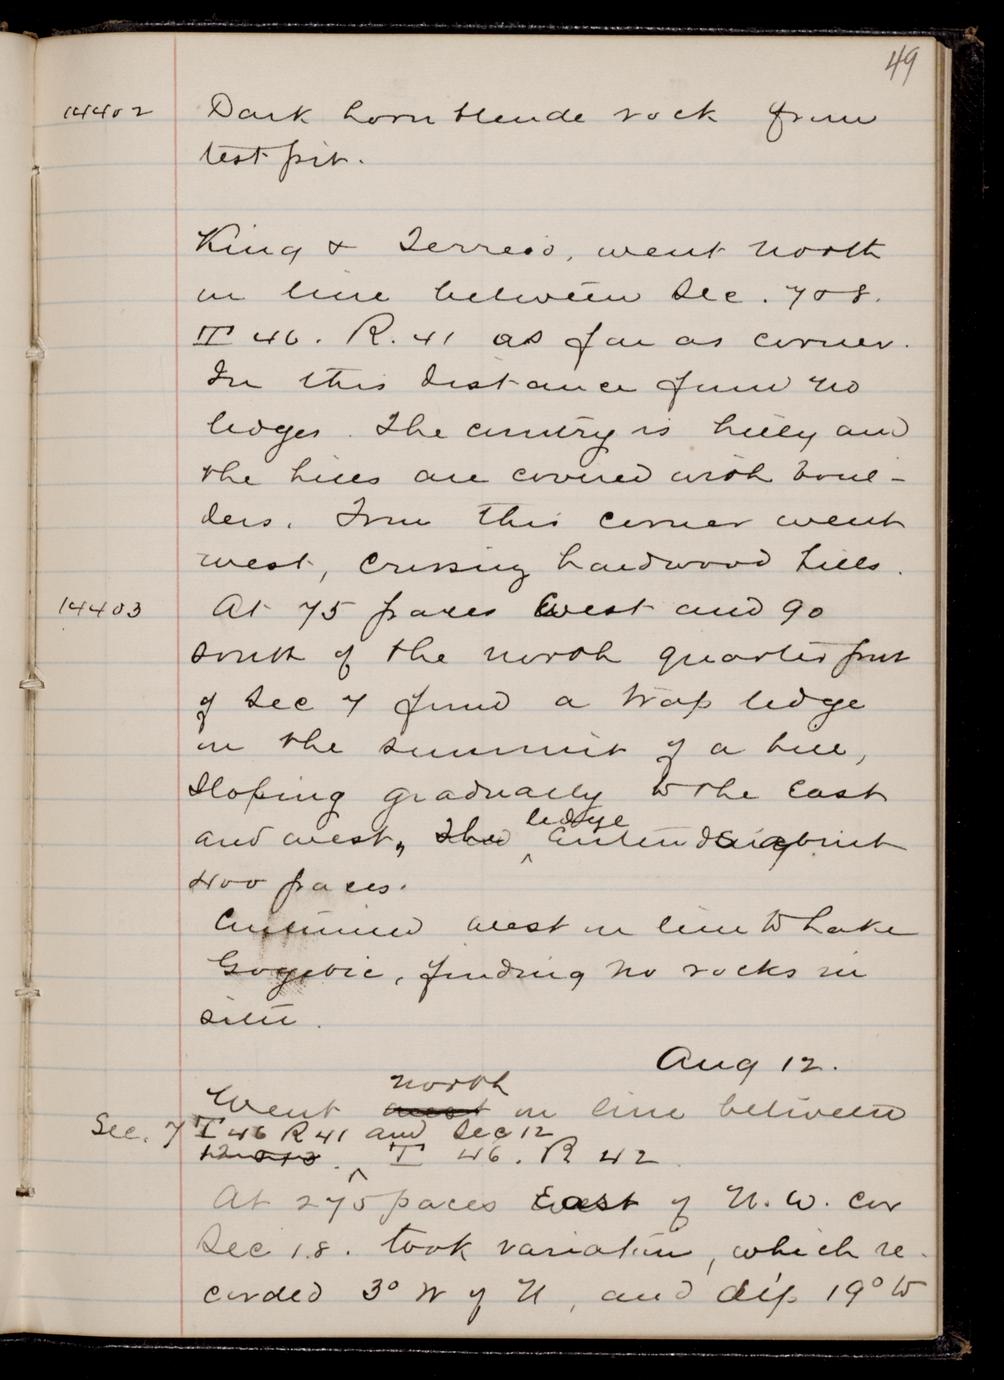 49
14402 Dark hornblende rock from
test pit.
King & Ferreio, went north
on line between Sec. 7 & 8.
T 46. R. 41 as far as corner.
In this distance found no
ledges. The country is hilly and
the hills are covered with boul-
ders. From this corner went
west, crossing hardwood hills.
14403 At 75 paces West and 90
south of the north quarter post
of Sec 7 found a trap ledge
on the summit of a hill,
sloping gradually to the East
and west, The ledge Extends about
400 paces.
Continued west on line to Lake
Gogebic, finding no rocks in
situ.
Aug 12.
Went west north on line between
Sec. 7 T 46 R 41 and Sec 12
12 & 13. T 46. R 42.
At 275 paces East of N. W. cor
Sec 18. took variation, which re-
corded 3° W of N, and dip 19° to